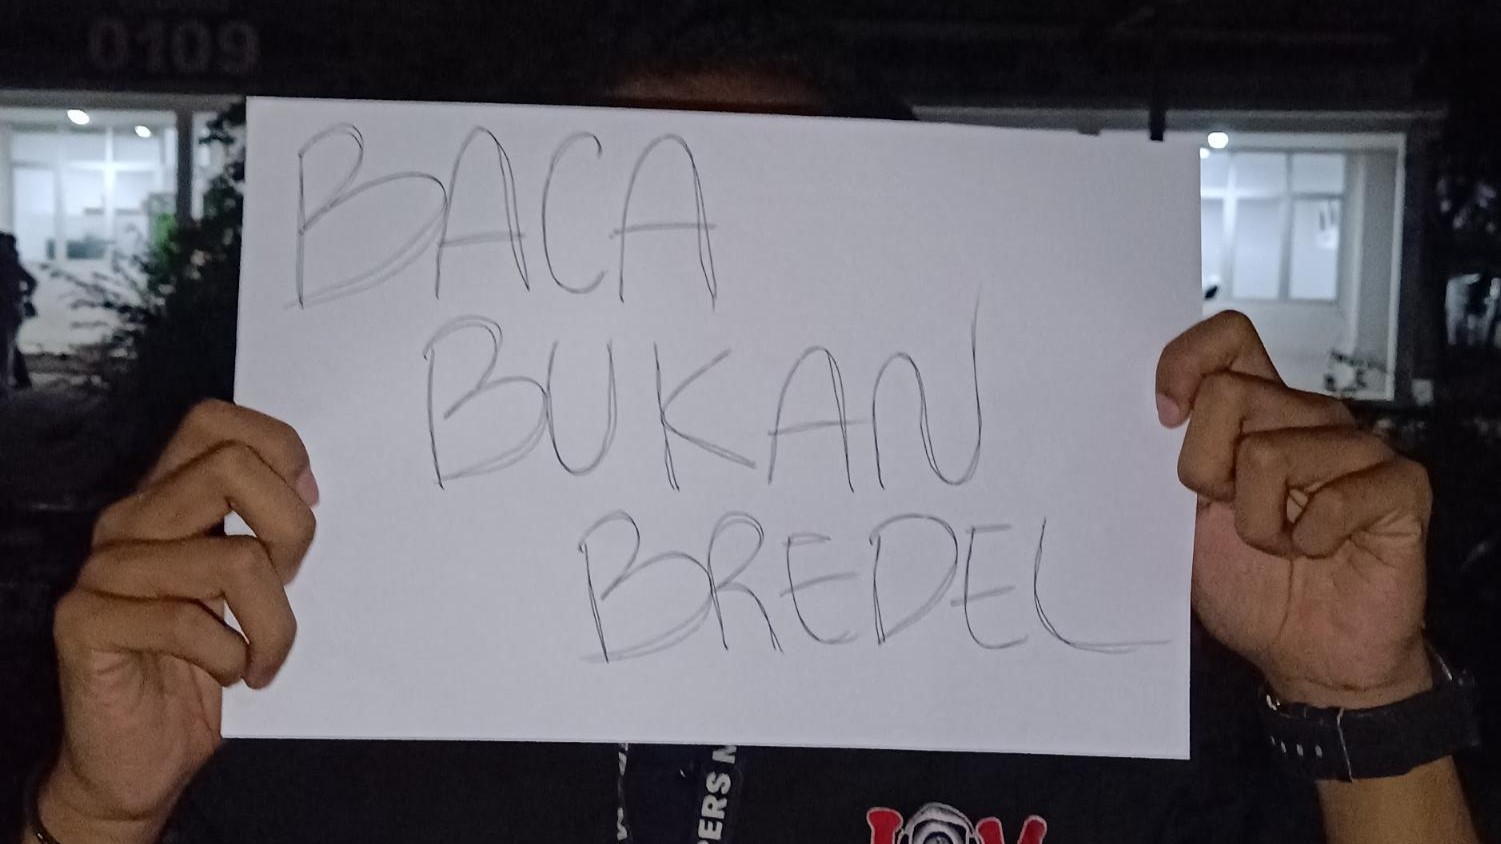 0109
BACA
BUKAN
BREDEL
PERS M